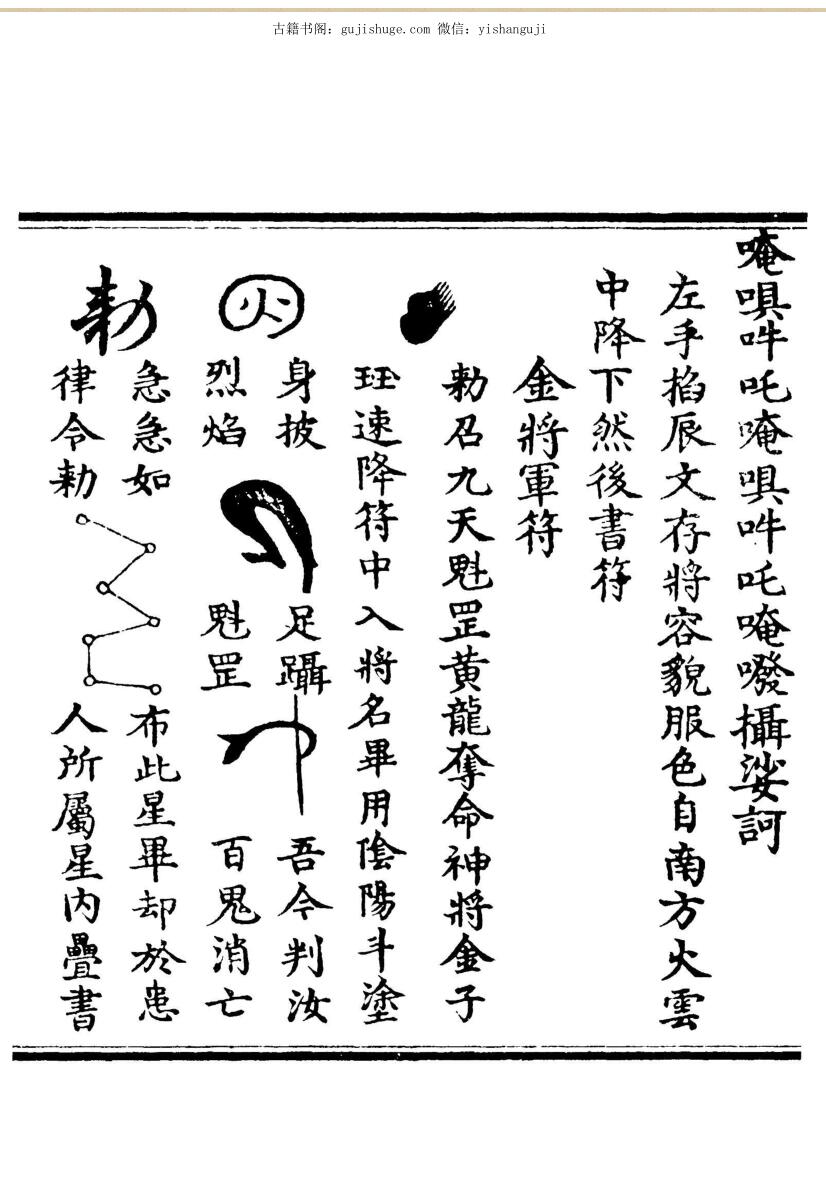 古籍书阁：gujishuge.com 微信：yishanguji
唵唄吽吒唵唄吽吒唵嚩攝娑訶
左手掐辰文存將容貌服色自南方火雲
中降下然後書符
金將軍符
勑召九天魁罡黄龍奪命神將金子
珏速降符中入將名畢用陰陽斗塗
身披
烈焰
足躡
魁罡
吾今判汝
百鬼消亡
火
勑
急急如
律令勑
布此星畢却於患
人所屬星内疊書